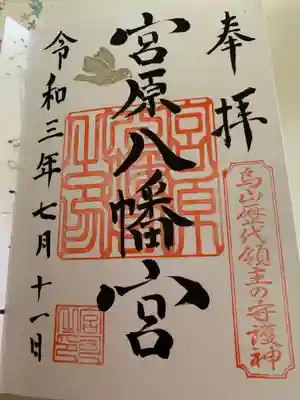 奉拝
烏山歴代領主の守護神
宮原八幡宮
令和三年七月十一日